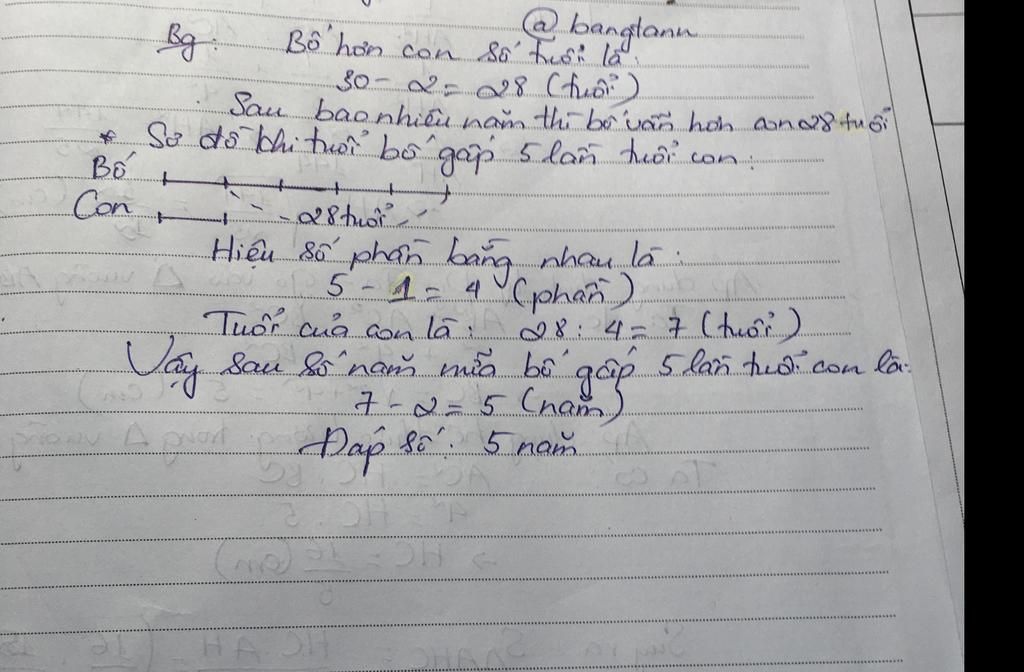 @ bangtann
Bg: Bố hơn con số tuổi là:
30 - 2 = 28 (tuổi)
Sau bao nhiêu năm thì bố vẫn hơn con 28 tuổi
* Sơ đồ khi tuổi bố gấp 5 lần tuổi con:
Bố
Con 28 tuổi
Hiệu số phần bằng nhau là:
5 - 1 = 4 (phần)
Tuổi của con là: 28 : 4 = 7 (tuổi)
Vậy sau số năm nữa bố gấp 5 lần tuổi con là:
7 - 2 = 5 (năm)
Đáp số: 5 năm